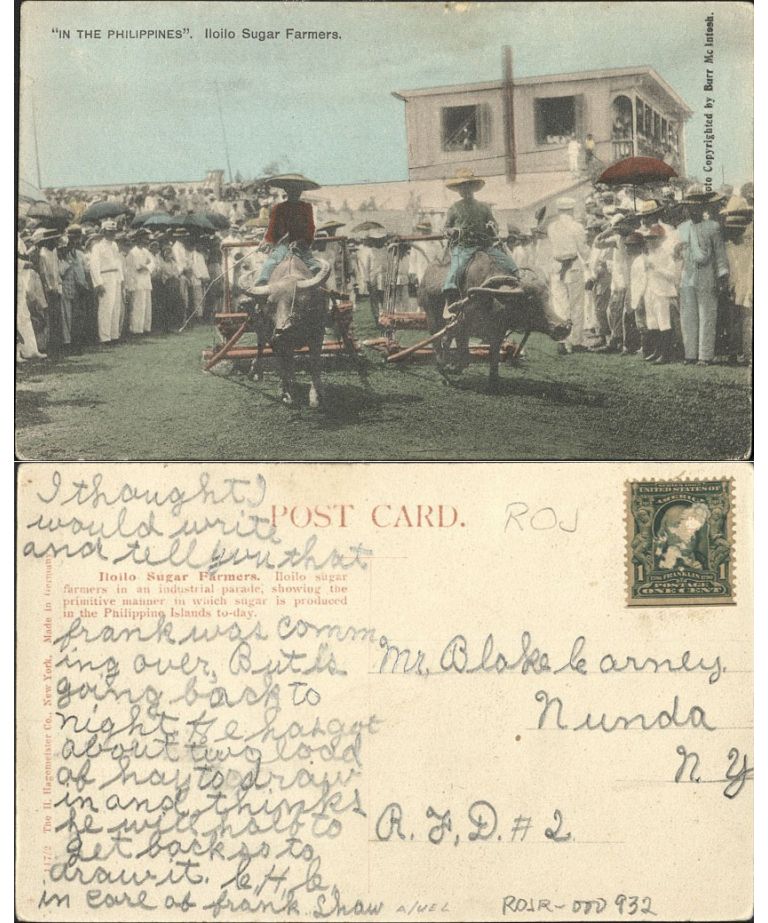 "IN THE PHILIPPINES". Iloilo Sugar Farmers.
oto Copyrighted by Burr Mc Intosh.
I thought I
would write
and tell you that
POST CARD.
ROJ
UNITED STATES OF
AMERICA
1 FRANKLIN 1
POSTAGE
ONE CENT
Iloilo Sugar Farmers. Iloilo sugar
farmers in an industrial parade, showing the
primitive manner in which sugar is produced
in the Philippine Islands to-day.
frank was comm
ing over, But is
going back to
night, He has got
about two load
of hay to draw
in and thinks
he will halo to
get back so to
draw it. C. H. C.
in care of frank Shaw
Mr. Blake Carney.
Nunda
N. Y
R. F. D. # 2.
The H. Hagemeister Co., New York. Made in Germany
ROJR-000932